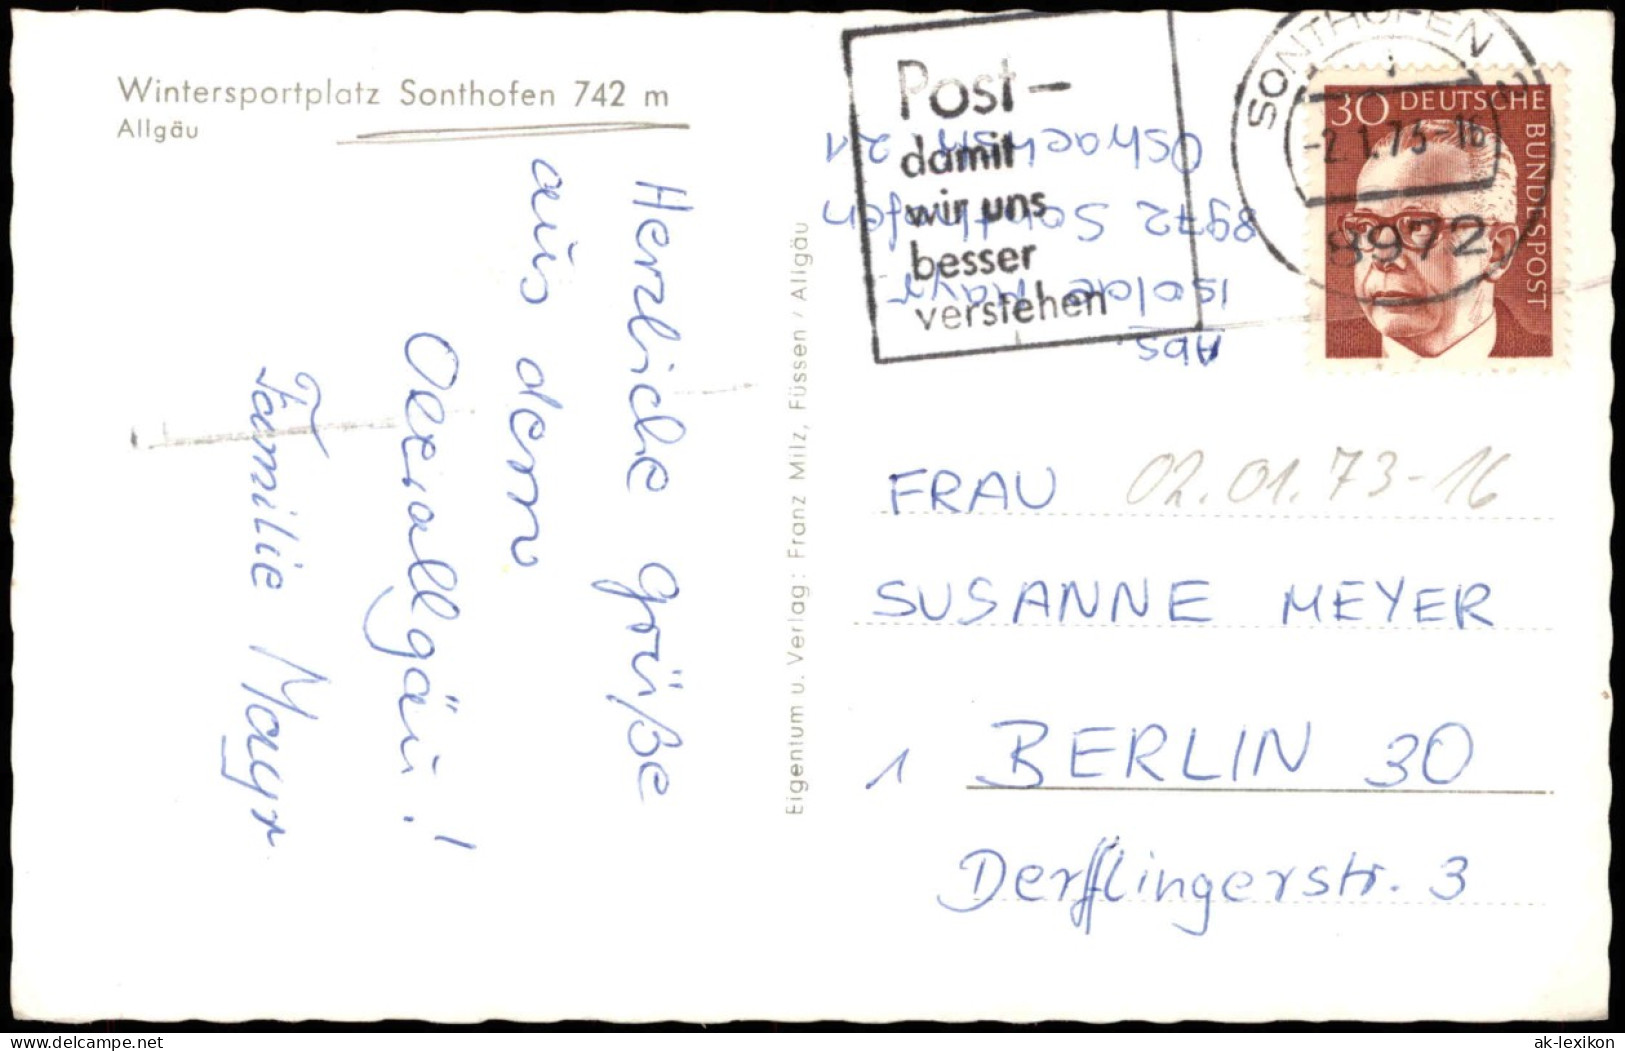 Wintersportplatz Sonthofen 742 m
Allgäu
Herzliche Grüße
aus dem
Oberallgäu!
Familie Mayr
Eigentum u. Verlag: Franz Milz, Füssen / Allgäu
Post –
damit
wir uns
besser
verstehen
SONTHOFEN
-2.1.73-16
8972
30 DEUTSCHE
BUNDESPOST
Abs.
Isolde Mayr
8972 Sonthofen
21
FRAU 02.01.73-16
SUSANNE MEYER
1 BERLIN 30
Derfflingerstr. 3
ak-lexikon